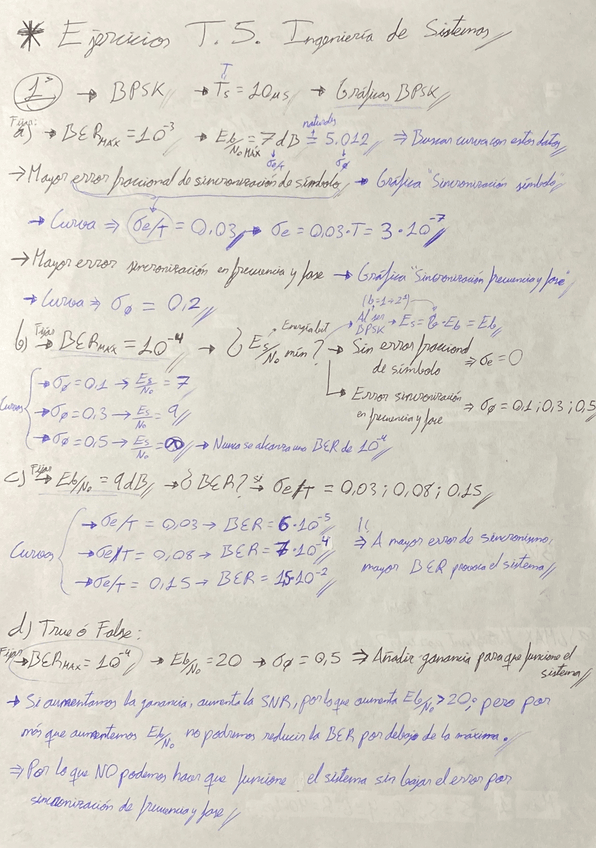 * Ejercicios T.5. Ingeniería de Sistemas
1º → BPSK → Ts = 10 μs → Gráficas BPSK
T
Fijar: a) → BER MÁX = 10^-3 → Eb/No MÁX = 7 dB = 5.012 ⇒ Buscar curva con estos datos
naturales
σe/T σø
→ Mayor error fraccional de sincronización de símbolo → Gráfica "Sincronización símbolo"
→ Curva ⇒ σe/T = 0,03 → σe = 0,03·T = 3·10^-7
→ Mayor error sincronización en frecuencia y fase → Gráfica "Sincronización frecuencia y fase"
→ Curva ⇒ σø = 0,2
(b=1→2^b)
b) Fijar → BER MÁX = 10^-4 → ¿Es/No mín? → Sin error fraccional de símbolo ⇒ σe = 0
Energía bit
Al ser BPSK → Es = b·Eb = Eb
→ Error sincronización en frecuencia y fase ⇒ σø = 0,1; 0,3; 0,5
Curvas
→ σø = 0,1 → Es/No = 7
→ σø = 0,3 → Es/No = 9
→ σø = 0,5 → Es/No = → Nunca se alcanza una BER de 10^-4
c) Fijar → Eb/No = 9 dB → ¿BER? si → σe/T = 0,03; 0,08; 0,15
Curvas
→ σe/T = 0,03 → BER = 6·10^-5
→ σe/T = 0,08 → BER = 7·10^-4
→ σe/T = 0,15 → BER = 15·10^-2
⇒ A mayor error de sincronismo,
mayor BER provoca el sistema
d) True ó False:
Fijar → BER MAX = 10^-4 → Eb/No = 20 → σø = 0,5 ⇒ Añadir ganancia para que funcione el
sistema
→ Si aumentamos la ganancia, aumenta la SNR, por lo que aumenta Eb/No > 20; pero por
más que aumentemos Eb/No no podremos reducir la BER por debajo de la máxima.
⇒ Por lo que NO podemos hacer que funcione el sistema sin bajar el error por
sincronización de frecuencia y fase